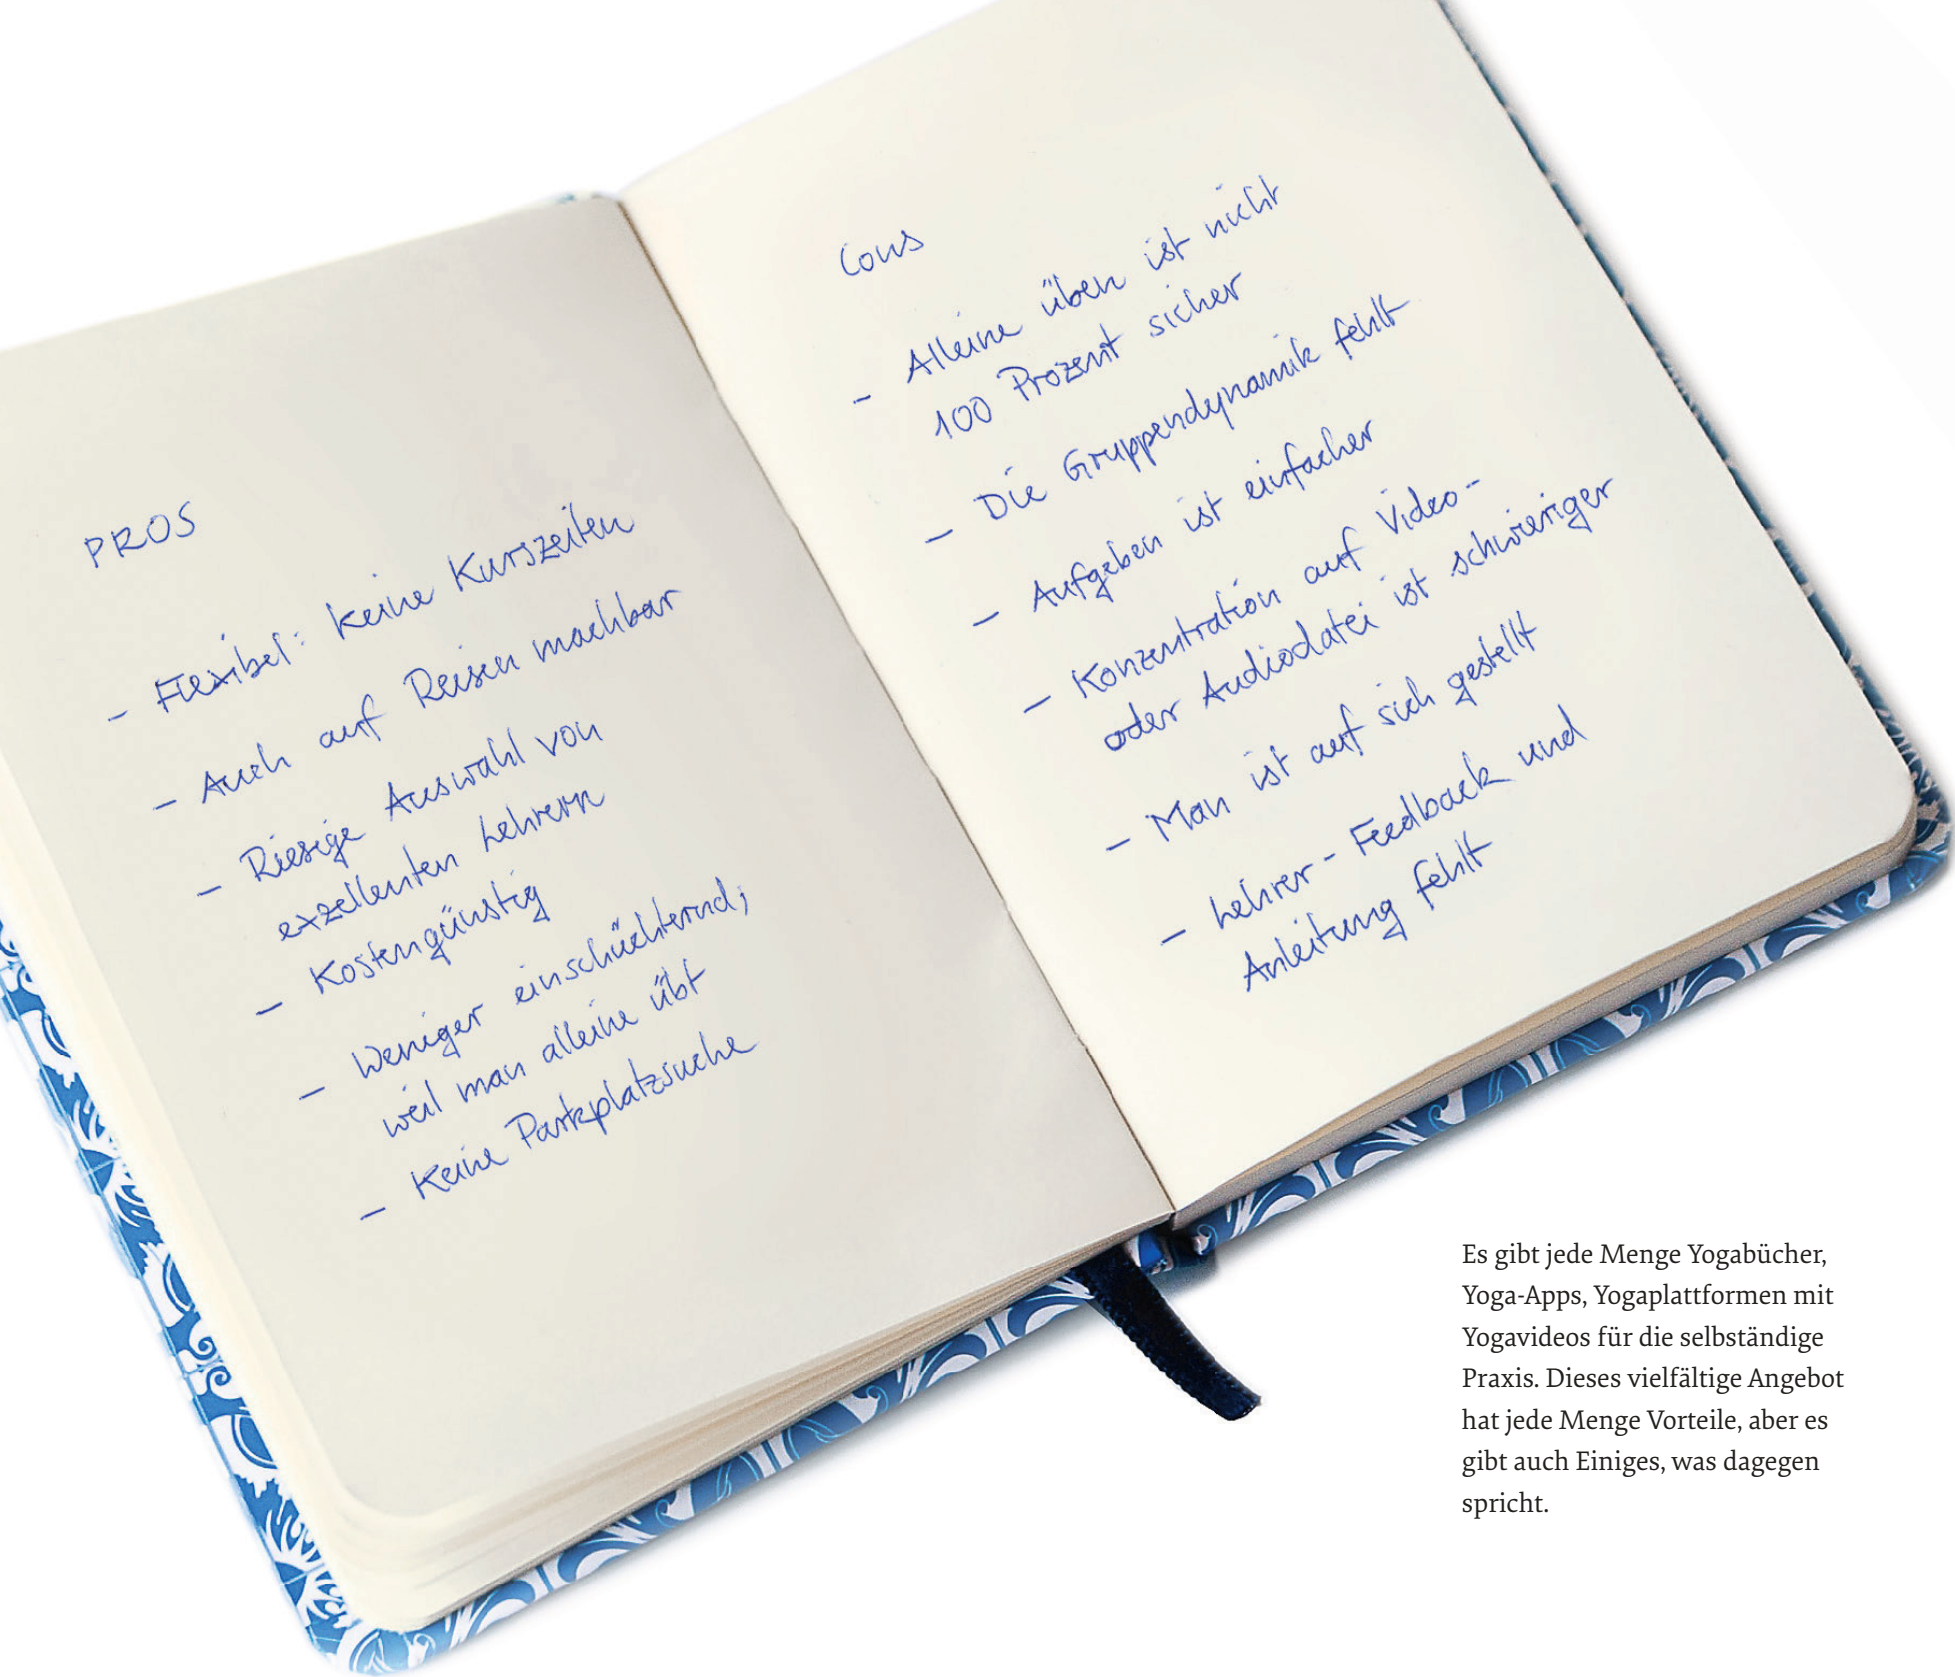 PROS
- Flexibel: keine Kurszeiten
- Auch auf Reisen machbar
- Riesige Auswahl von
exzellenten Lehrern
- Kostengünstig
- Weniger einschüchternd,
weil man alleine übt
- Keine Parkplatzsuche
Cons
- Alleine üben ist nicht
100 Prozent sicher
- Die Gruppendynamik fehlt
- Aufgeben ist einfacher
- Konzentration auf Video-
oder Audiodatei ist schwieriger
- Man ist auf sich gestellt
- Lehrer-Feedback und
Anleitung fehlt
Es gibt jede Menge Yogabücher,
Yoga-Apps, Yogaplattformen mit
Yogavideos für die selbständige
Praxis. Dieses vielfältige Angebot
hat jede Menge Vorteile, aber es
gibt auch Einiges, was dagegen
spricht.